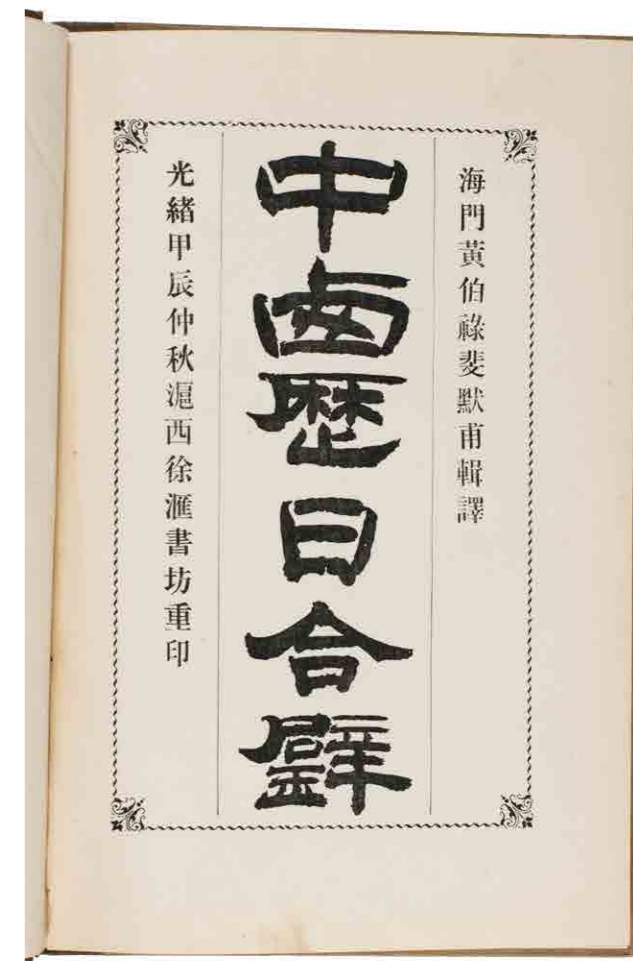 海門黃伯祿斐默甫輯譯
中西歷日合璧
光緒甲辰仲秋滬西徐滙書坊重印